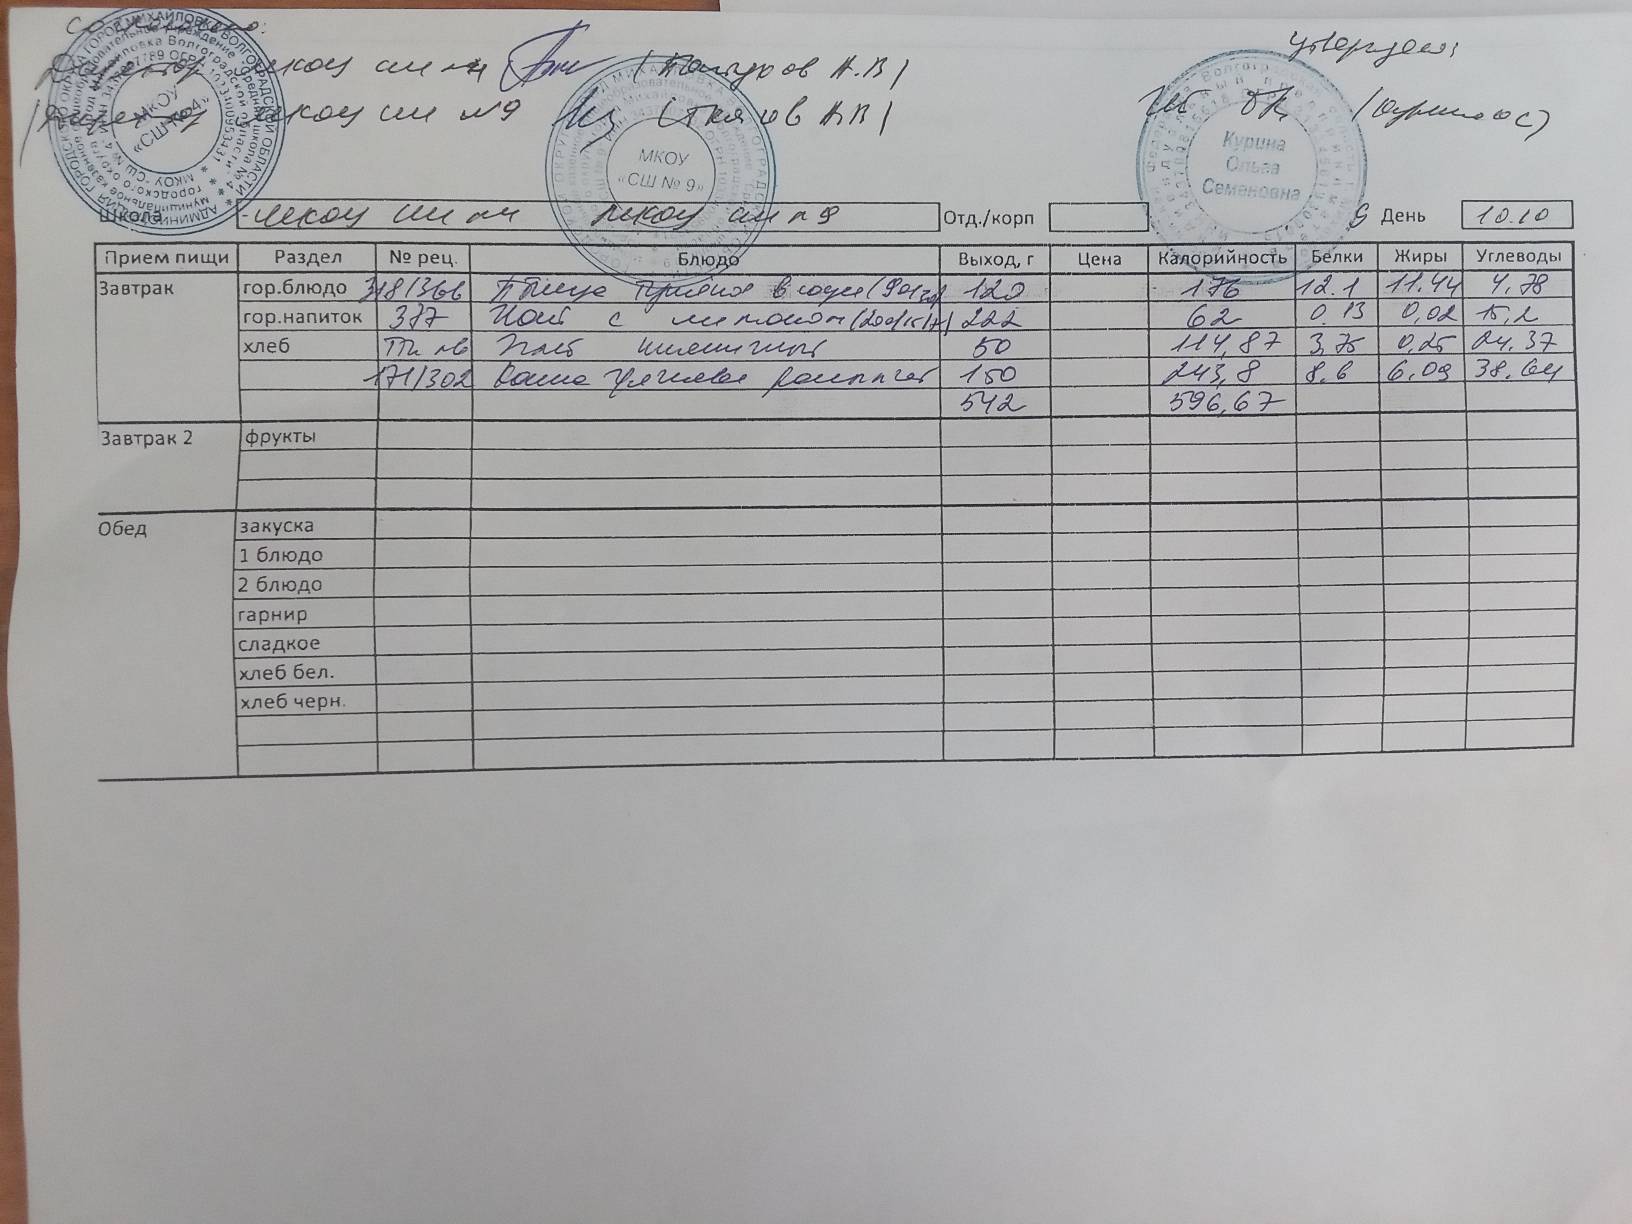 Согласовано: Утверждаю:
Директор МКОУ СШ №4 А.В)
Директор МКОУ СШ №9 А.В) ИП (Курина О С)
АДМИНИСТРАЦИЯ ГОРОДСКОГО ОКРУГА ГОРОД МИХАЙЛОВКА ВОЛГОГРАДСКОЙ ОБЛАСТИ
МКОУ
«СШ № 4»
МКОУ
«СШ № 9»
Курина
Ольга
Семеновна
Школа МКОУ СШ №4 МКОУ СШ №9 Отд./корп 9 День 10.10
Прием пищи Раздел № рец. Блюдо Выход, г Цена Калорийность Белки Жиры Углеводы
Завтрак гор.блюдо 318/366 Птица в соусе 120 176 12.1 11.44 4.78
гор.напиток 377 Чай с лимоном (200/15/7) 222 62 0.13 0,02 15,2
хлеб Хлеб пшеничный 50 114,87 3,75 0,25 24.37
171/302 Каша гречневая рассыпчат 150 243,8 8.6 6,09 38.64
542 596,67
Завтрак 2 фрукты
Обед закуска
1 блюдо
2 блюдо
гарнир
сладкое
хлеб бел.
хлеб черн.